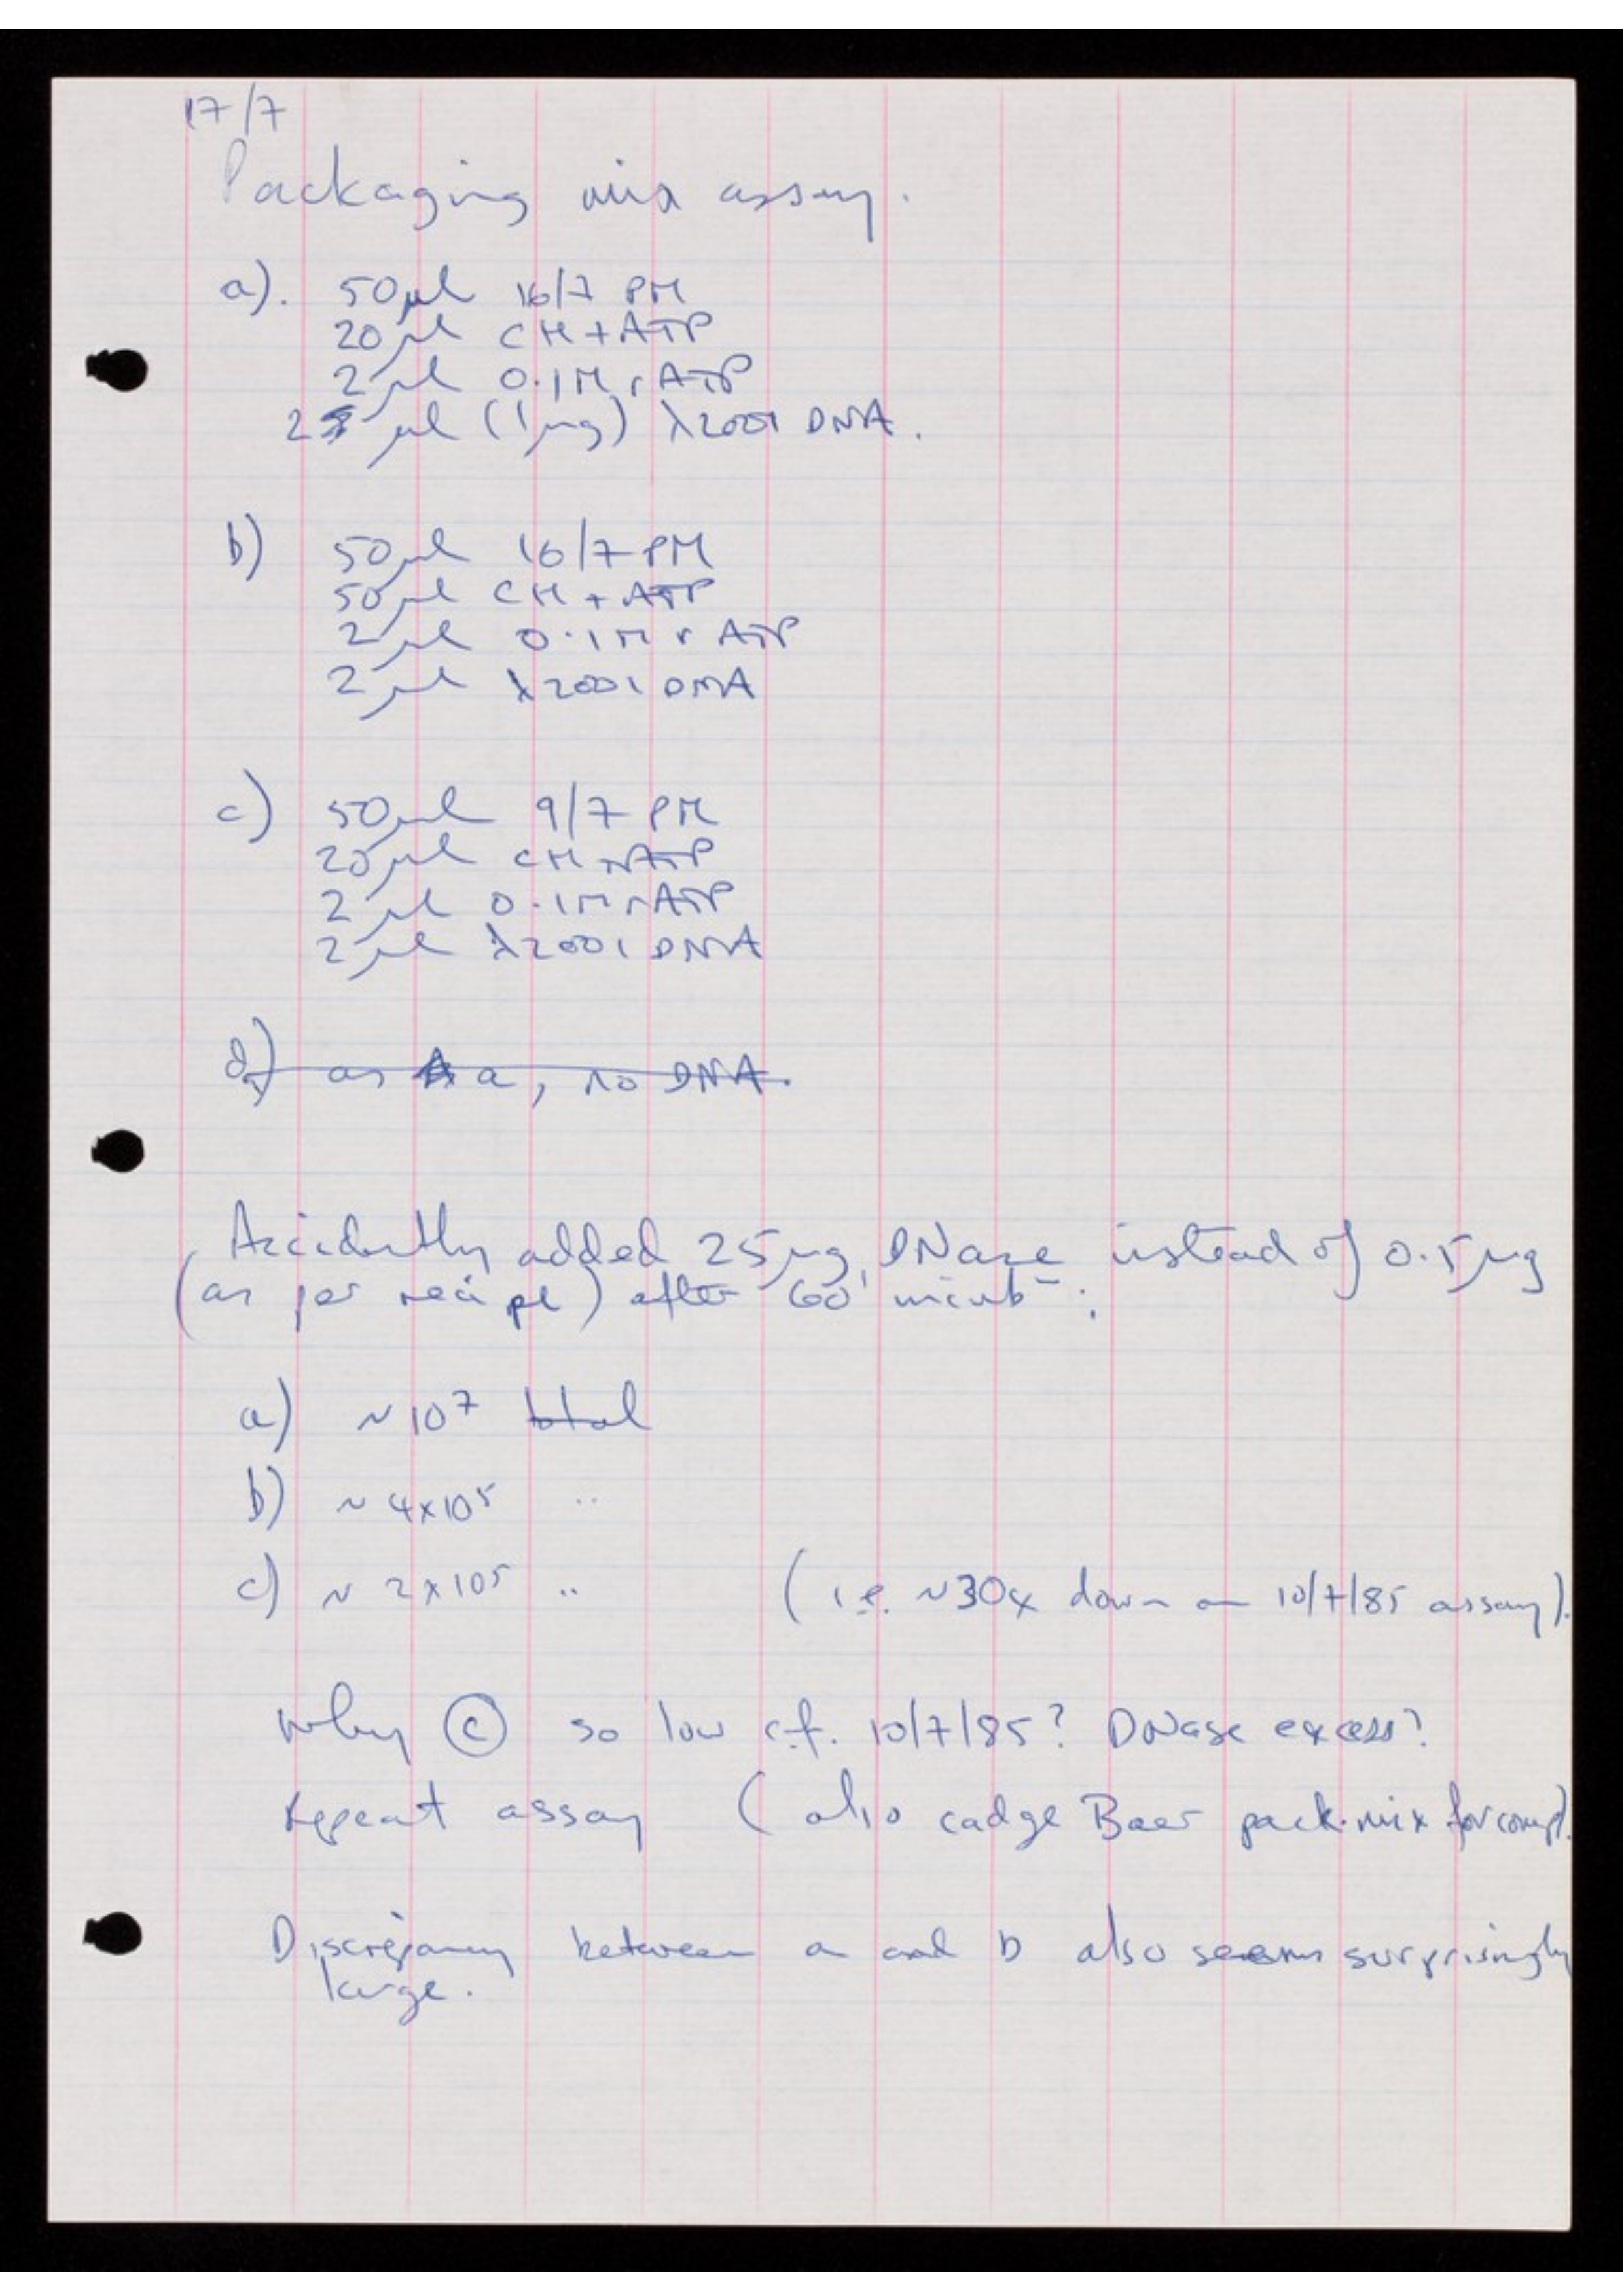 17/7
Packaging mix assay.
a). 50µl 16/7 PM
20µl CH + ATP
2µl 0.1M rATP
2 µl (1µg) λ2001 DNA.
b) 50µl 16/7 PM
50µl CH + ATP
2µl 0.1M rATP
2µl λ2001 DNA
c) 50µl 9/7 PM
20µl CH + ATP
2µl 0.1M rATP
2µl λ2001 DNA
d) as a, no DNA.
Accidently added 25µg DNase instead of 0.5µg
(as per recipe) after 60' incubⁿ.
a) ~10⁷ total
b) ~4x10⁵ "
c) ~2x10⁵ " (i.e. ~30x down on 10/7/85 assay).
Why ⓒ so low c.f. 10/7/85? DNase excess?
Repeat assay (also cadge Baer pack.mix for comp).
Discrepancy between a and b also seems surprisingly
large.